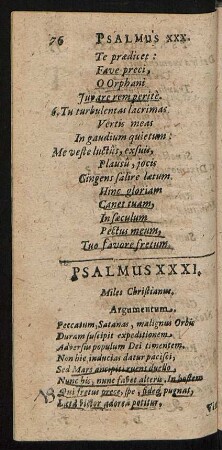 76 PSALMUS XXX.
Te prædicet:
Fave preci,
O Orphani
Juvare rem peritè.
6. Tu turbulentas lacrimas
Vertis meas
In gaudium quietum:
Me veste luctûs, exsui,
Plausû, jocis
Cingens salire lætum.
Hinc gloriam
Canet tuam,
In sæculum
Pectus meum,
Tuo favore fretum.
PSALMUS XXXI.
Miles Christianus.
Argumentum.
Peccatum, Satanas, malignus Orbis
Duram suscipit expeditionem.
Adversus populum Dei timentem.
Non hic inducias datur pacisci,
Sed Mars ancipiti cruens duello,
Nunc his, nunc favet alteris. In hostem
NB Qui fretus prece, spe, fide, pugnat,
Læta victor adorea potitur,